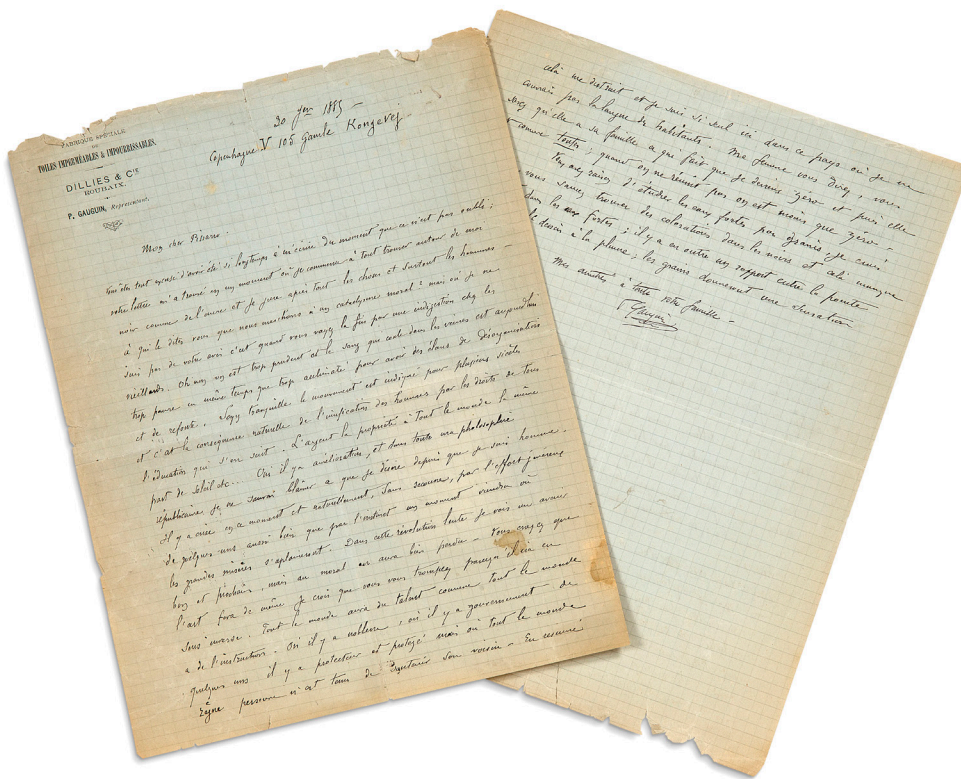 FABRIQUE SPÉCIALE
DE
TOILES IMPERMÉABLES & IMPOURRISSABLES.
DILLIES & Cie
ROUBAIX.
P. GAUGUIN, Représentant.
20 Jer 1885 –
Copenhague V 105 Gamle Kongevej
Mon cher Pissarro.
Vous êtes tout excusé d'avoir été si longtemps à m'écrire du moment que ce n'est pas oubli ;
votre lettre m'a trouvé en un moment où je commence à tout trouver autour de moi
noir comme de l'encre et je jure après tout les choses et surtout les hommes –
à qui le dites vous que nous marchons à un cataclysme moral ? mais où je ne
suis pas de votre avis c'est quand vous voyez la fin par une indigestion chez les
vieillards. Oh non on est trop prudent et le sang qui coule dans les veines est aujourd'hui
trop pauvre en même temps que trop acclimaté pour avoir des élans de désorganisations
et de refonte. Soyez tranquille le mouvement est indiqué pour plusieurs siècles
et c'est la conséquence naturelle de l'unification des hommes par les droits de tous
l'éducation qui s'en suit. L'argent la propriété à tout le monde la même
part de soleil etc.. Oui il y a amélioration, et dans toute ma philosophie
républicaine je ne saurai blâmer ce que je désire depuis que je suis homme.
il y a crise en ce moment et naturellement, sans secousses, par l'effort généreux
de quelques-uns aussi bien que par l'instinct un moment viendra où
les grandes misères s'aplaniront. Dans cette révolution lente je vois un avenir
bon et prochain, mais au moral on aura bien perdu – Vous croyez que
l'art fera de même je crois que vous vous trompez parcequ'il ira en
sens inverse. Tout le monde aura du talent comme tout le monde
a de l'instruction. Où il y a noblesse, où il y a gouvernement de
quelques uns il y a protecteur et protégé mais où tout le monde
règne personne n'est tenu de soutenir son voisin – En résumé
celà me distrait et je suis si seul ici dans ce pays où je ne
connais pas la langue des habitants. Ma femme vous direz, vous
savez qu'elle a sa famille ce qui fait que je deviens zéro et puis elle
est comme toutes ; quand on ne réussit pas on est moins que zéro –
Vous avez raison d'étudier les eaux fortes par grains ; je crois
vous saurez trouver des colorations dans les noirs et celà manque
dans les eaux fortes ; il y a en outre un rapport entre la pointe
le dessin à la plume ; les grains donneront une sensation
Mes amitiés à toute votre famille –
P Gauguin